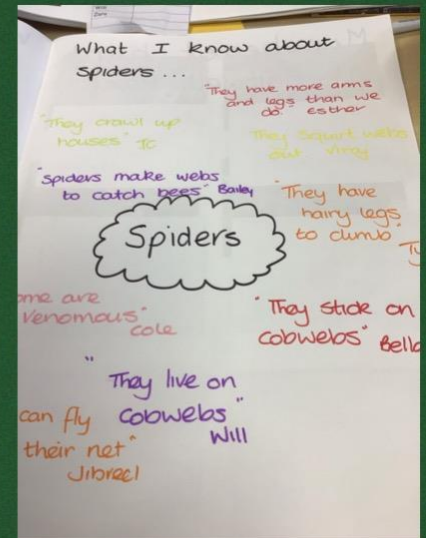 What I know about
spiders ...
"They have more arms
and legs than we
do." Esther
"They crawl up
houses" JC
They squirt webs
out Vinny
"spiders make webs
to catch bees" Bailey
"They have
hairy legs
to climb"
Spiders
ome are
venomous"
Cole
"They stick on
cobwebs" Bella
"They live on
cobwebs"
Will
can fly
their net"
Jibreel